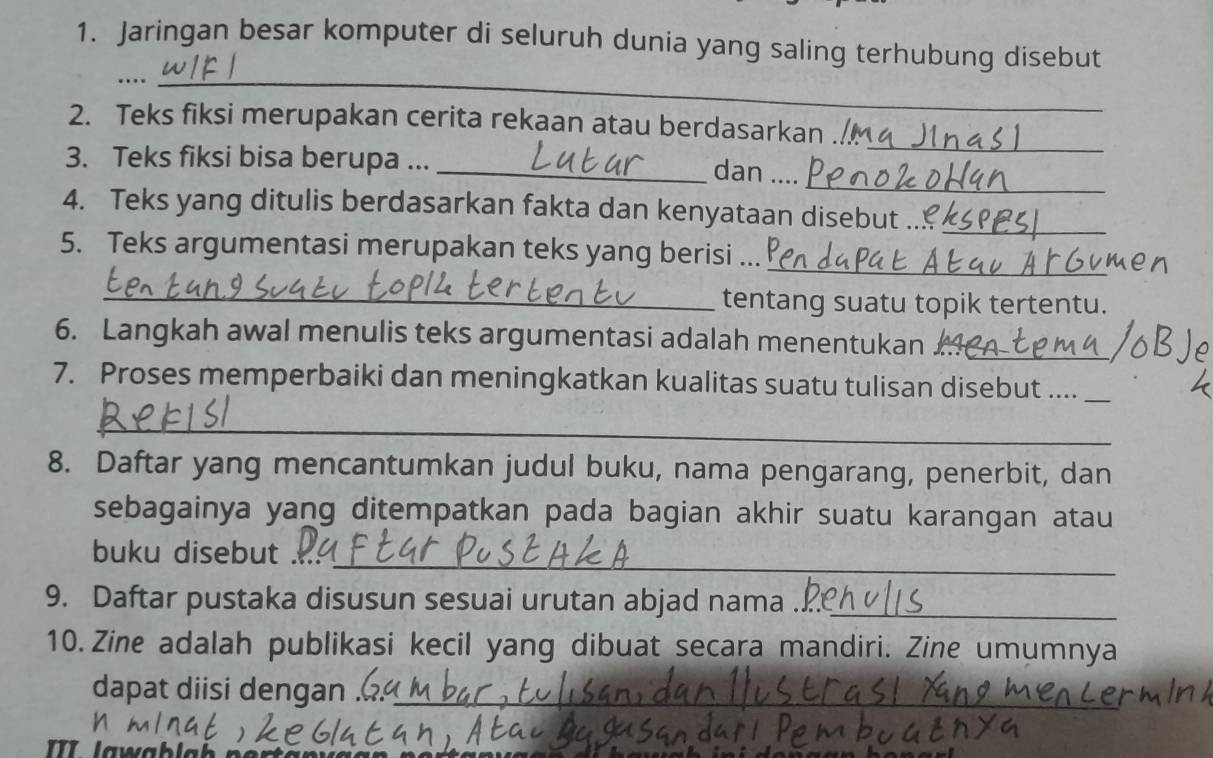 1. Jaringan besar komputer di seluruh dunia yang saling terhubung disebut
.... WIFI
2. Teks fiksi merupakan cerita rekaan atau berdasarkan .... ima Jinasi
3. Teks fiksi bisa berupa ... Latar dan .... Penokohan
4. Teks yang ditulis berdasarkan fakta dan kenyataan disebut .... ekspesi
5. Teks argumentasi merupakan teks yang berisi ... Pendapat Atau ArGumen
tentang suatu topik tertentu tentang suatu topik tertentu.
6. Langkah awal menulis teks argumentasi adalah menentukan .... tema/oBJe
k
7. Proses memperbaiki dan meningkatkan kualitas suatu tulisan disebut ....
ReFisi
8. Daftar yang mencantumkan judul buku, nama pengarang, penerbit, dan
sebagainya yang ditempatkan pada bagian akhir suatu karangan atau
buku disebut .... DaFtar PustAkA
9. Daftar pustaka disusun sesuai urutan abjad nama .... Penulis
10. Zine adalah publikasi kecil yang dibuat secara mandiri. Zine umumnya
dapat diisi dengan .... Gambar, tulisan, dan ilustrasi Yang mencermink
n minat, keGiatan, Atau Gagasan dari Pembuatnya
III. Jawablah pertanyaan-pertanyaan di bawah ini dengan benar!